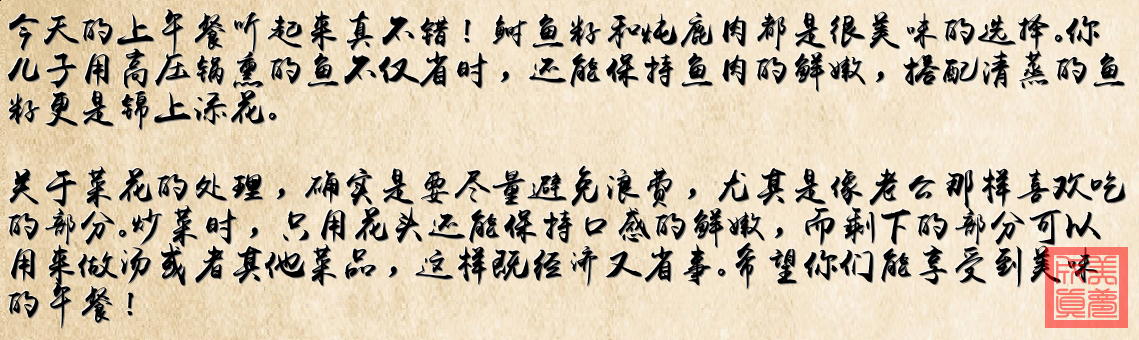 今天的上午餐听起来真不错！鲋鱼籽和炖鹿肉都是很美味的选择。你
儿子用高压锅熏的鱼不仅省时，还能保持鱼肉的鲜嫩，搭配清蒸的鱼
籽更是锦上添花。
关于菜花的处理，确实是要尽量避免浪费，尤其是像老公那样喜欢吃
的部分。炒菜时，只用花头还能保持口感的鲜嫩，而剩下的部分可以
用来做汤或者其他菜品，这样既经济又省事。希望你们能享受到美味
的午餐！
美梦
成真